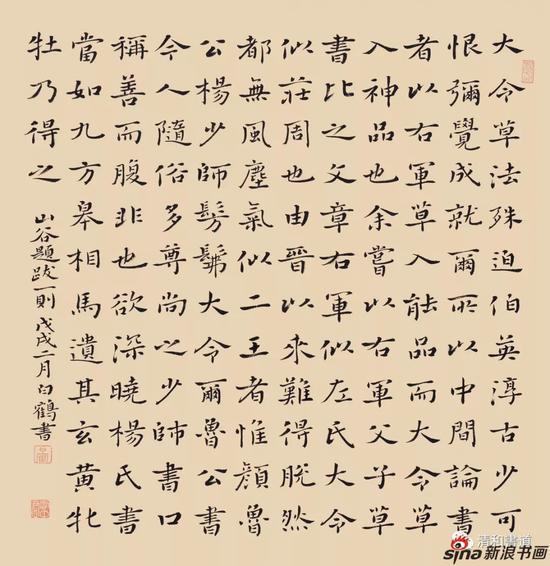 大令草法殊迫伯英淳古少可
恨彌覺成就爾所以中間論書
者以右軍草入能品而大令草
入神品也余嘗以右軍父子草
書比之文章右軍似左氏大令
似莊周也由晉以來難得脫然
都無風塵氣似二王者惟顏魯
公楊少師髣髴大令爾魯公書
今人隨俗多尊尚之少師書口
稱善而腹非也欲深曉楊氏書
當如九方皋相馬遺其玄黃牝
牡乃得之
山谷題跋一則 戊戌二月白鶴書
清和書道
sina新浪书画